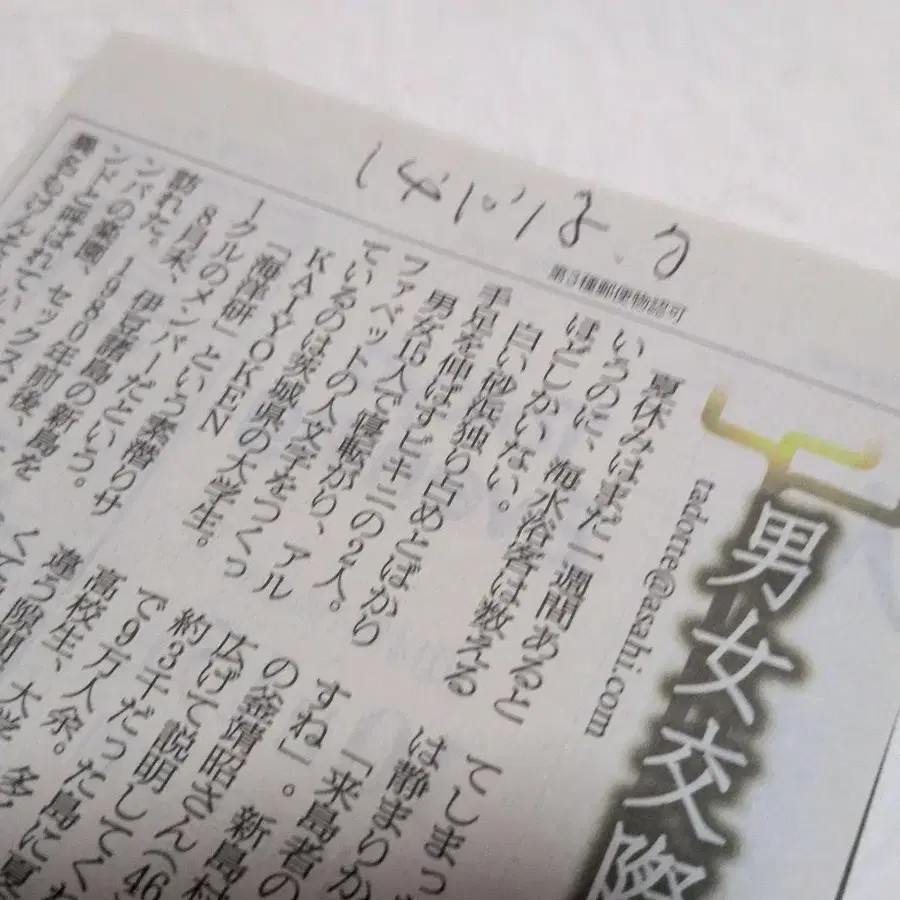 14.10.18 夕
第3種郵便物認可
男女交際
tadotte@asahi.com
夏休みはまだ一週間あると
いうのに、海水浴客は数える
ほどしかいない。
白い砂浜独り占めとばかり
手足を伸ばすビキニの2人。
男女16人で寝転がり、アル
ファベットの人文字をつくっ
ているのは茨城県の大学生。
KAIYOKEN
「海洋研」という素潜りサ
ークルのメンバーだという。
8月末、伊豆諸島の新島を
訪れた。1980年前後、
ンパの楽園、セックスア
ンドと呼ばれてい
異名をほん
てしまっ
は静まりか
「来島者の
すね」。新島村
の釜靖昭さん(46
広げて説明してくれ
約3千だった島に夏
で9万人余。
高校生、大学
違う隙間